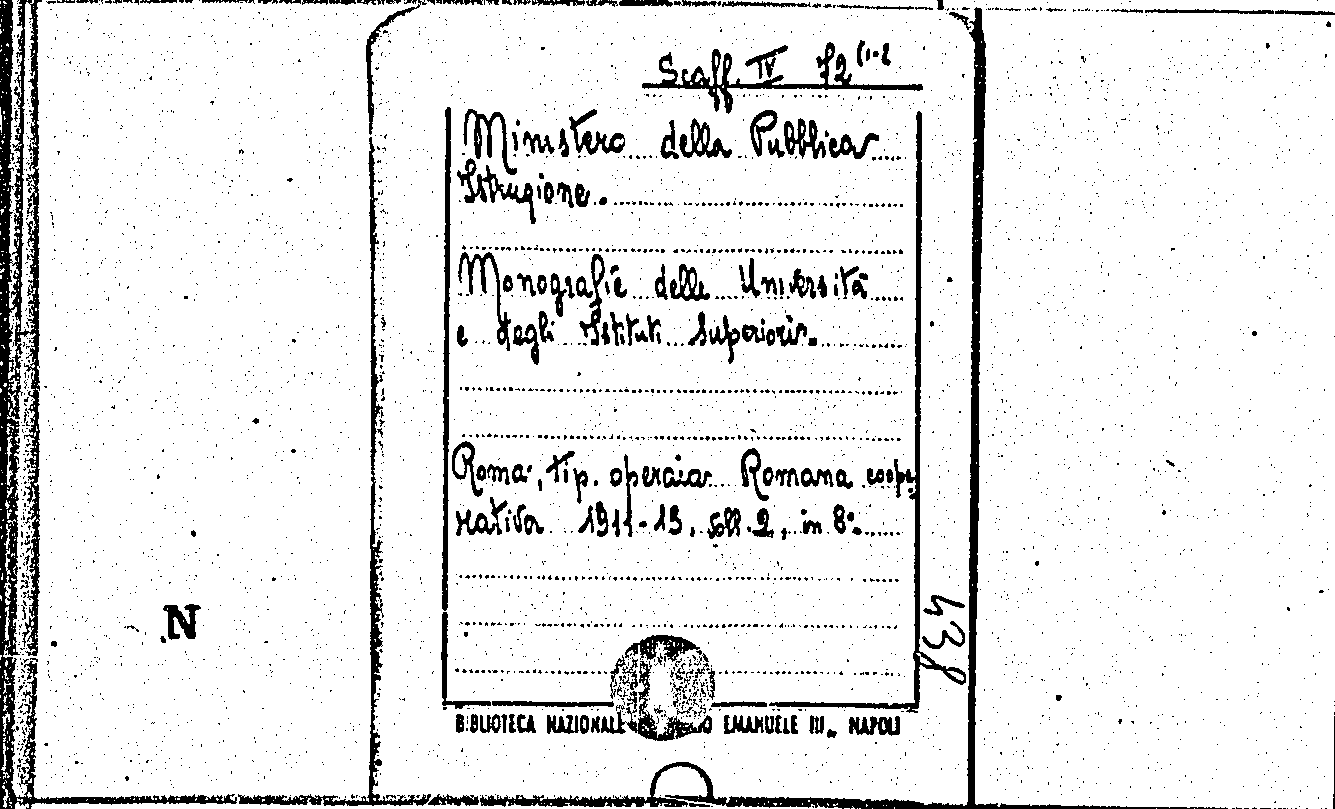 Scaff. IV 72 (1-2
Ministero della Pubblica
Istruzione.
Monografie delle Università
e degli Istituti Superiori.
Roma, tip. operaia Romana coope-
rativa 1911-13. voll. 2, in 8°.
438
N
BIBLIOTECA NAZIONALE EMANUELE III„ NAPOLI